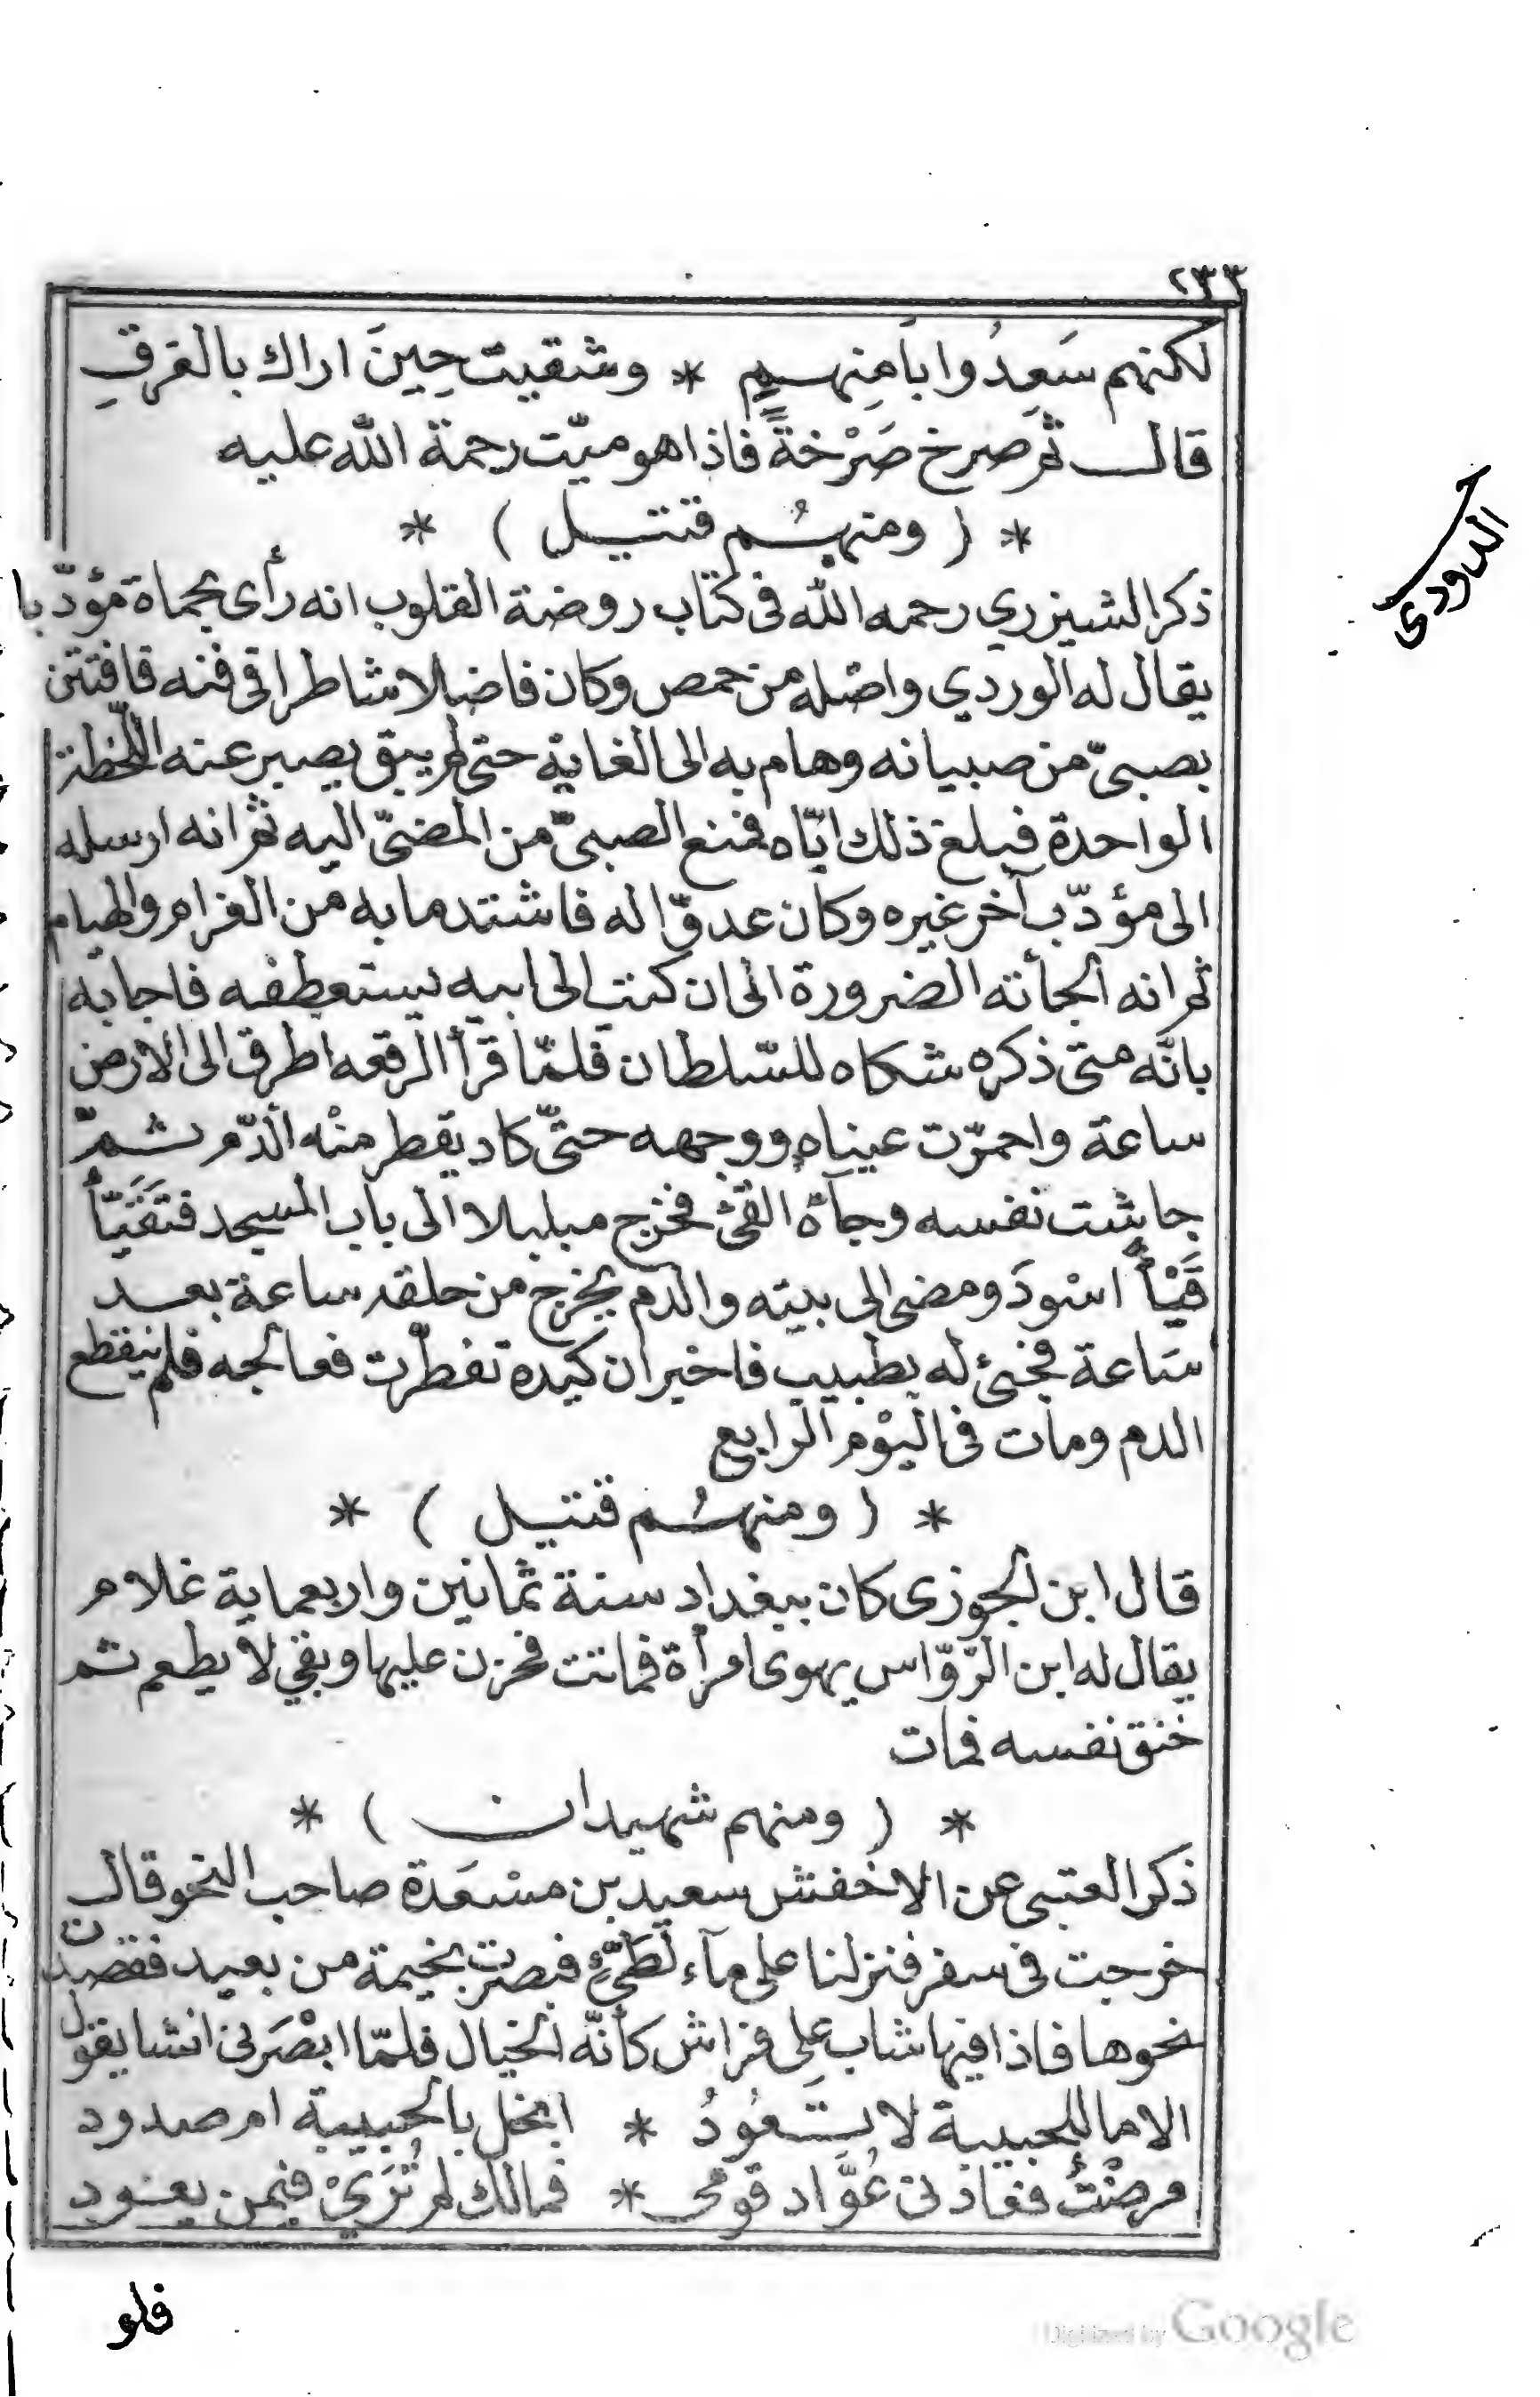 ٢٣٣
لكنهم سَعِدُوا بأمنِهم * وشقيت حِينَ اراك بالفرقِ
قال ثم صرخ صَرْخةً فاذا هو ميّت رحمة الله عليه
* ( ومنهُم قتيل ) *
ذكر الشيزري رحمه الله فى كتاب روضة القلوب انه رأى بحماة مؤدّبا
يقال له الوردي واصله من حمص وكان فاضلا شاطرا فى فنه فافتتن
بصبىّ من صبيانه وهام به الى الغاية حتى لم يبق يصبر عنه اللّحظة
الواحدة فبلغ ذلك ابّاه فمنع الصبىّ من المضىّ اليه ثم انه ارسله
الى مؤدّب آخر غيره وكان عدوّا له فاشتد ما به من الغرام والهيام
ثم انه الجأته الضرورة الى ان كتب الى ابيه يستعطفه فاجابه
بانّه متى ذكره شكاه للسّلطان فلمّا قرأ الرقعه اطرق الى الارض
ساعة واحمرّت عيناه ووجهه حتىّ كاد يقطر منْه الدّم ثُمّ
جاشت نفسه وجآه القئ فخرج مبلبلا الى باب المسجد فتَقَيّأ
قَيْأً اسْودَ ومضى الى بيته والدم يخرج من حلقه ساعة بعد
سَاعة فجئ له بطبيب فاخبر ان كبده تفطّرت فعالجه فلم ينقطع
الدم ومات فى اليْوم الرابع
* ( ومنهُم قتيل ) *
قال ابن الجوزى كان ببغداد سنة ثمانين واربعماية غلام
يقال له ابن الرّوّاس يهوى امرأة فماتت فحزن عليها وبقي لا يطعم ثم
خنق نفسه فمات
* ( ومنهم شهيدان ) *
ذكر العتبى عن الاخفش سعيد بن مسْعَدة صاحب النحو قال
خرجت فى سفر فنزلنا على مآء لطَيّئ فبصرت بخيمة من بعيد فقصدت
نحوها فاذا فيها شاب على فراش كأنّه الخيال فلمّا ابْصَرنى انشا يقول
الا ما للحبيبة لا تَعُودُ * ابخل بالحبيبة ام صدود
مرضْتُ فعادنى عُوَّاد قومى * فمالك لم تُرَىْ فيمن يعود
فلو
الدودى
Digitized by Google